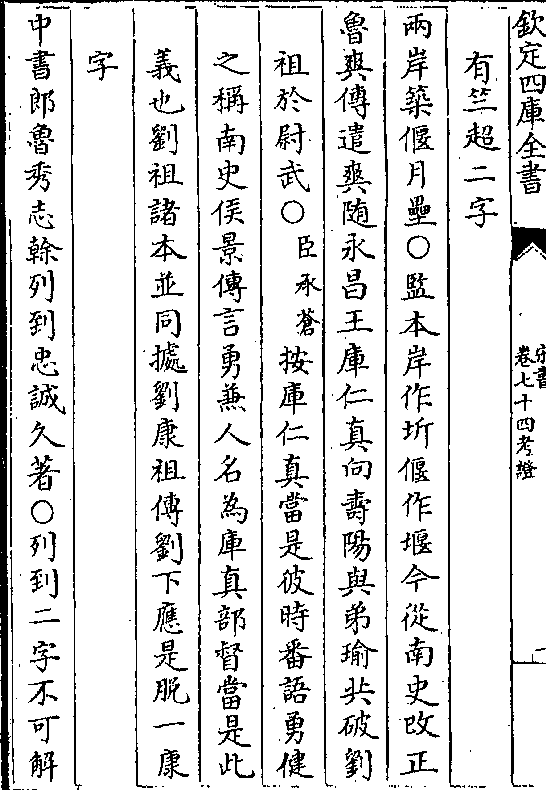 欽定四庫全書
宋書
卷七十四考證
一
有竺超二字
兩岸築偃月壘○監本岸作圻偃作堰今從南史改正
魯爽傳遣爽随永昌王庫仁真向壽陽與弟瑜共破劉
祖於尉武○臣承蒼按庫仁真當是彼時番語勇健
之稱南史侯景傳言勇兼人名為庫真部督當是此
義也劉祖諸本並同據劉康祖傳劉下應是脫一康
字
中書郎魯秀志榦列到忠誠久著○列到二字不可解